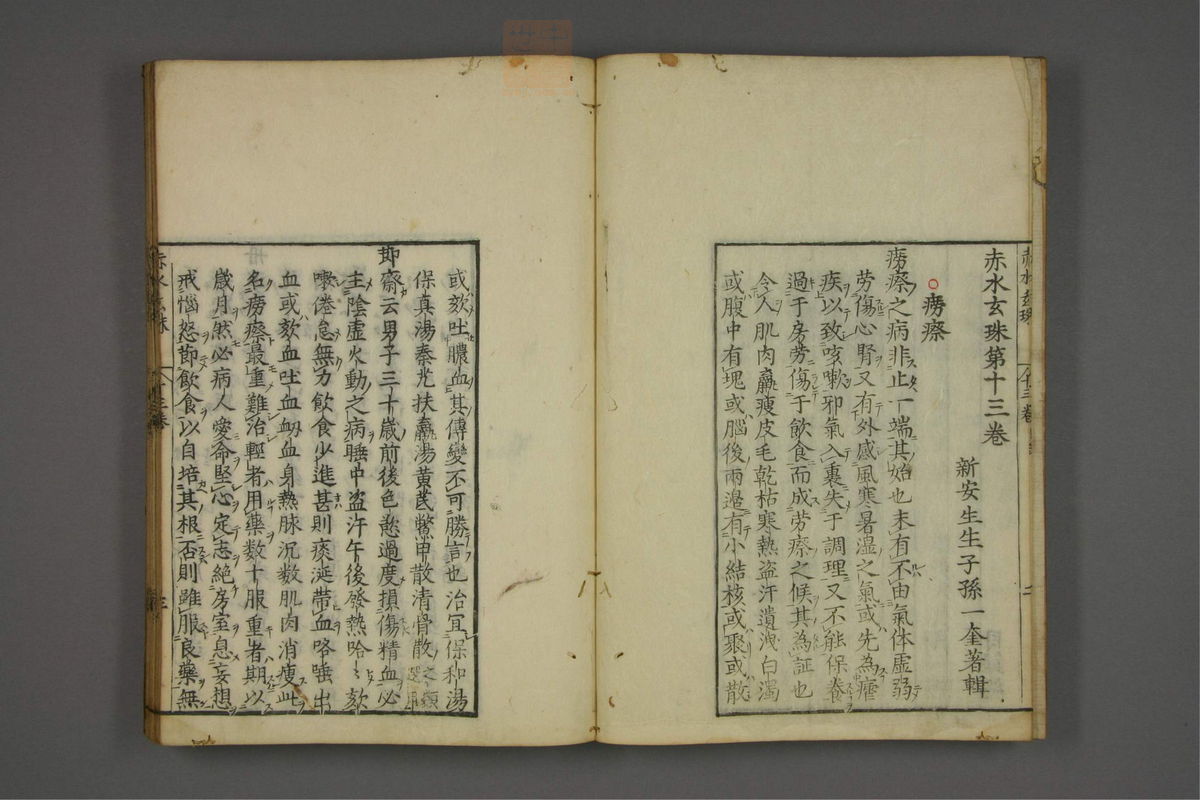 赤水玄珠第十三卷
新安生生子孫一奎著輯
癆瘵
癆瘵之病非止一端其始也未有不由氣体虚弱
劳傷心腎又有外感風寒暑湿之氣或先為瘧
疾以致咳嗽邪氣入裏失于調理又不能保養
過于房劳傷于飲食而成劳瘵之候其為証也
令人肌肉羸瘦皮毛乾枯寒熱盗汗遺洩白濁
或腹中有塊或腦後兩邊有小結核或聚或散
或欬吐膿血其傳變不可勝言也治宜保和湯
保真湯秦艽扶羸湯黄芪鱉甲散清骨散之類選用
節齋云男子三十歲前後色慾過度損傷精血必
主陰虚火動之病睡中盗汗午後發熱哈〻欬
嗽倦怠無力飲食少進甚則痰涎帶血咯唾出
血或欬血吐血衂血身熱脉沉数肌肉消瘦此
名癆瘵最重難治輕者用藥数十服重者期以
歲月然必病人愛命堅心定志絶房室息妄想
戒惱怒節飲食以自培其根否則雖服良藥無